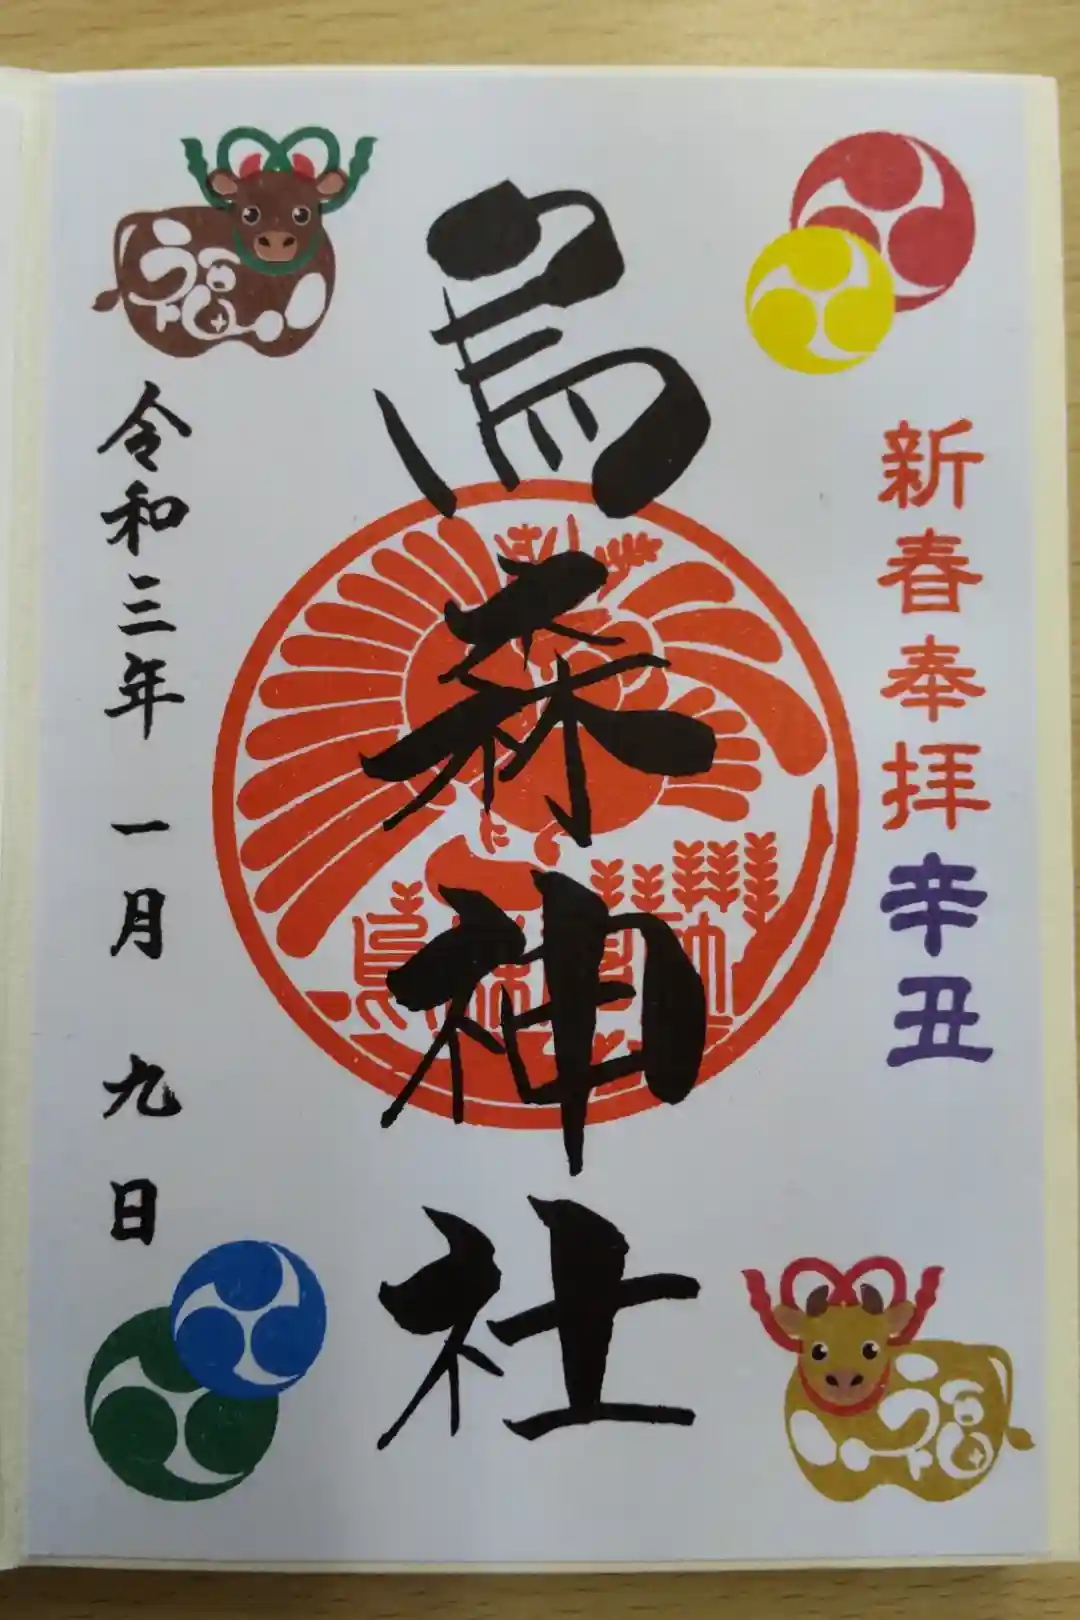 新春奉拝辛丑
烏森神社
令和三年 一月 九日
福
福